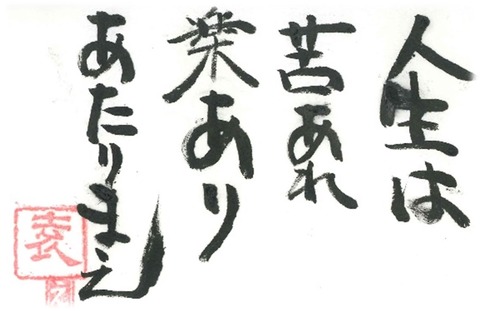 人生は
苦あれ
楽あり
あたりまえ